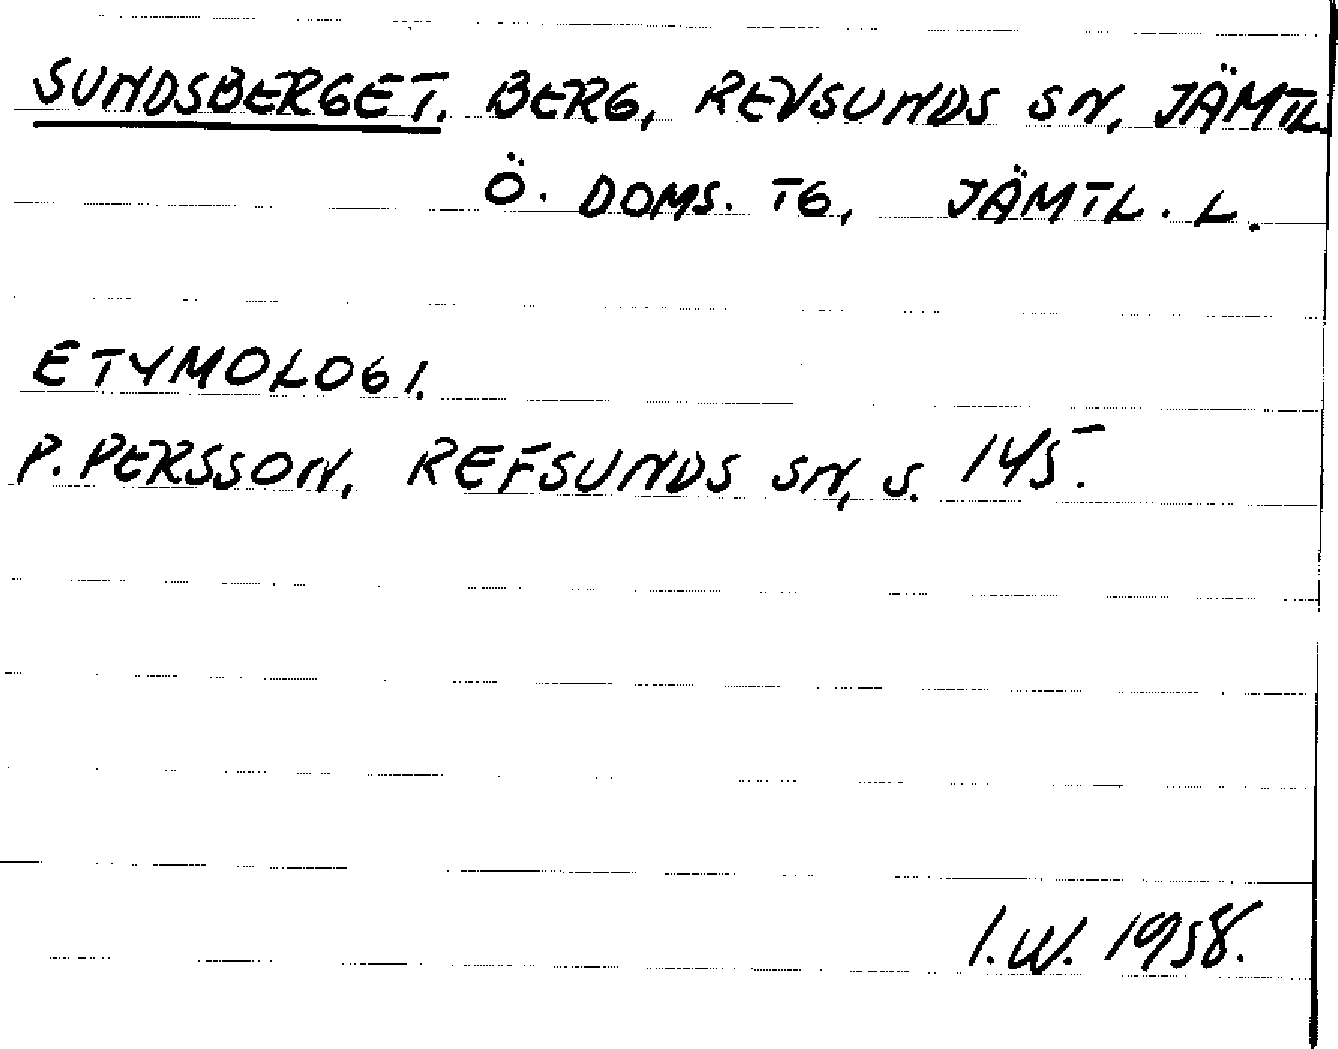 SUNDSBERGET. BERG, REVSUNDS SN, JÄMTL.
Ö. DOMS. TG, JÄMTL. L.
ETYMOLOGI.
P. PERSSON, REFSUNDS SN, S. 145.
I.W. 1958.